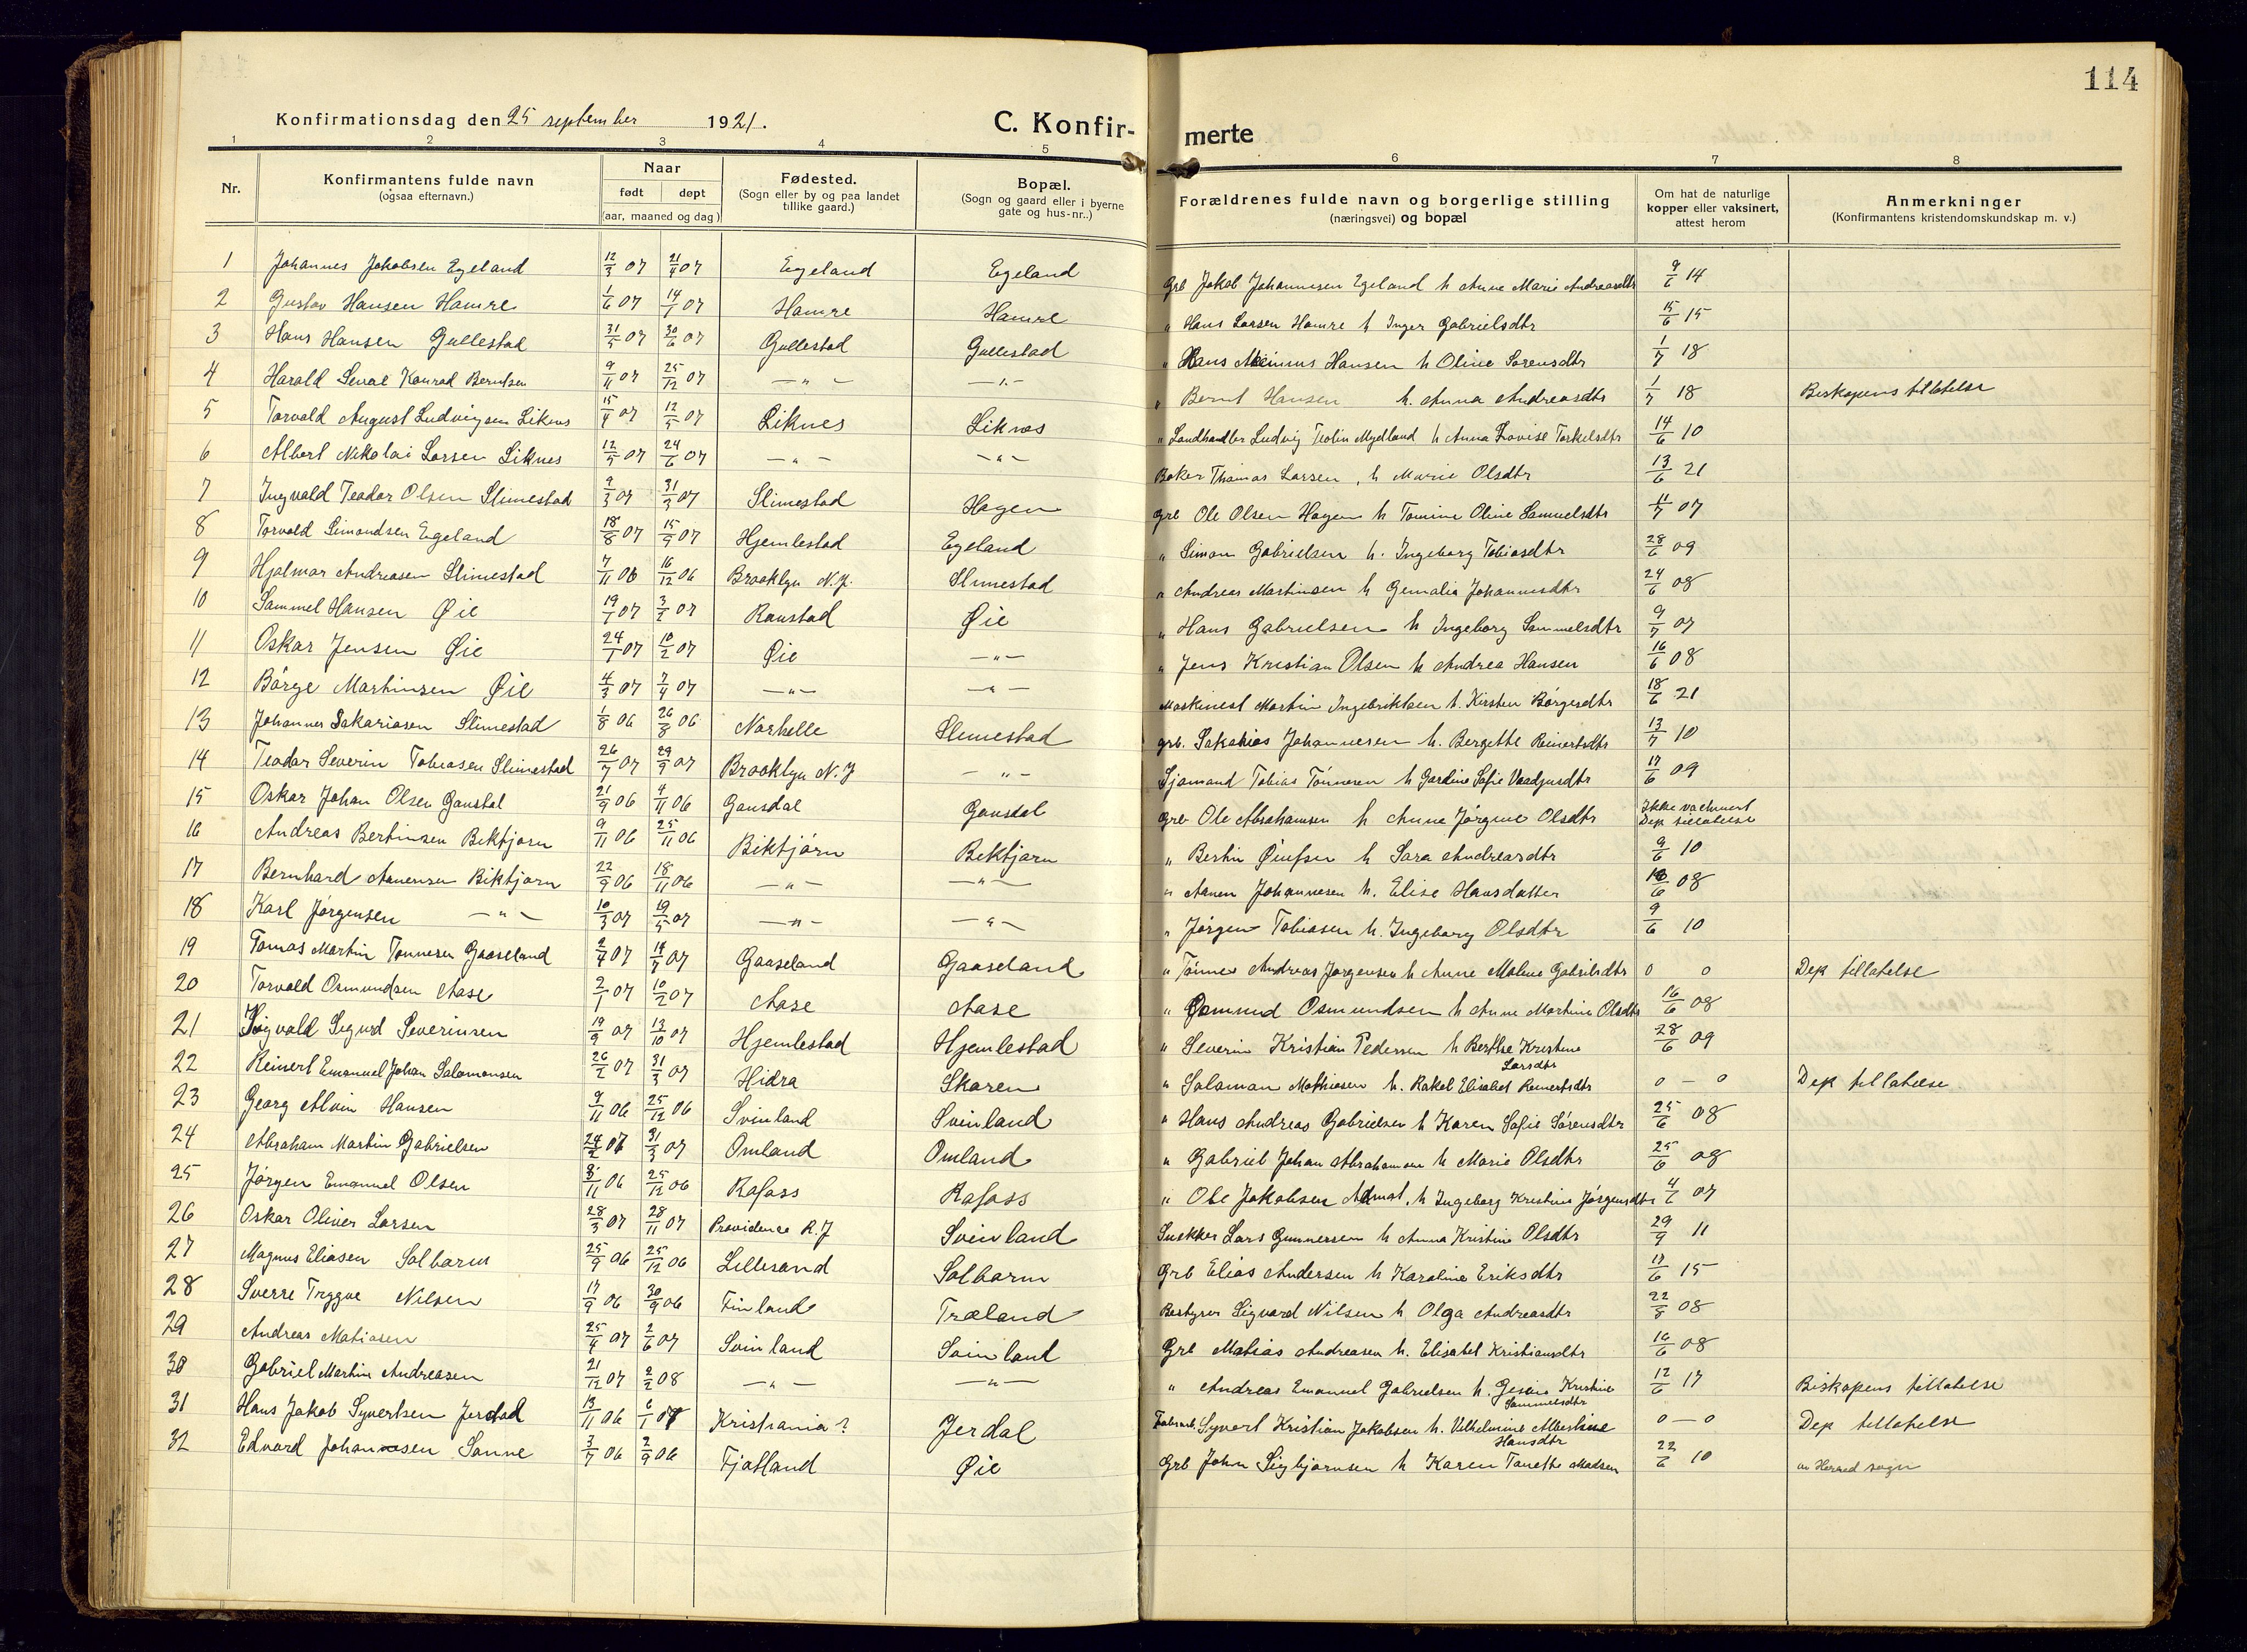 114
Konfirmationsdag den 25 september 1921.
C. Konfir-
merte
1 2 3 4 5 6 7 8
Nr.
Konfirmantens fulde navn
(ogsaa efternavn.)
Naar
født døpt
(aar, maaned og dag)
Fødested.
(Sogn eller by og paa landet
tillike gaard.)
Bopæl.
(Sogn og gaard eller i byerne
gate og hus-nr..)
Forældrenes fulde navn og borgerlige stilling
(næringsvei) og bopæl
Om hat de naturlige
kopper eller vaksinert,
attest herom
Anmerkninger
(Konfirmantens kristendomskundskap m. v.)
1 Johannes Jakobsen Egeland 12/3 07 21/4 07 Egeland Egeland Grb Jakob Johannesen Egeland h Anne Marie Andreasdtr 9/6 14
2 Gustav Hansen Hamre 1/6 07 14/7 07 Hamre Hamre " Hans Larsen Hamre h Inger Gabrielsdtr 15/6 15
3 Hans Hansen Gullestad 31/5 07 30/6 07 Gullestad Gullestad " Hans Hansen h Oline Sørensdtr 1/7 18
4 Harald Konrad Berntsen 9/11 07 25/12 07 — " — — " — " Bernt Hansen h. Anna Andreasdtr 1/7 18 Biskopens tillatelse
5 Torvald August Ludvigsen Liknes 15/4 07 12/5 07 Liknes Liknes " Landhandler Ludvig Teolin Mydland h Anna Lovise Torkelsdtr 14/6 10
6 Albert Nikolai Larsen Liknes 12/5 07 24/6 07 — " — — " — Baker Thomas Larsen, h Marie Olsdtr 13/6 21
7 Ingvald Teodor Olsen Slimestad 9/3 07 31/3 07 Slimestad Hagen grb Ole Olsen Hagen h Tomine Oline Samuelsdtr 11/7 07
8 Torvald Simondsen Egeland 18/8 07 15/9 07 Hjemlestad Egeland " Simon Gabrielsen h. Ingeborg Tobiasdtr 28/6 09
9 Hjalmar Andreasen Slimestad 7/11 06 16/12 06 Brooklyn N.Y. Slimestad " Andreas Martinsen h Johannesdtr 24/6 08
10 Sammel Hansen Øie 19/1 07 3/2 07 Raustad Øie " Hans Gabrielsen h Ingeborg Sammelsdtr 9/7 07
11 Oskar Jensen Øie 24/1 07 10/2 07 Øie — " — " Jens Kristian Olsen h Andrea Hansen 16/6 08
12 Børge Martinsen Øie 4/3 07 7/4 07 — " — — " — Maskinist Martin Ingebriktsen h. Kirsten Børgesdtr 18/6 21
13 Johannes Sakariasen Slimestad 1/8 06 26/8 06 Narhelle Slimestad grb. Sakarias Johannesen h. Bergette Reinertsdtr 13/7 10
14 Teodor Severin Tobiasen Slimestad 26/7 07 29/9 07 Brooklyn N.Y — " — Sjømand Tobias Tønnesen h Gardine Sofie 17/6 09
15 Oskar Johan Olsen Gausdal 21/9 06 4/11 06 Gausdal Gausdal Grb Ole Abrahamsen h Anne Jørgine Olsdtr Ikke vaccinert Dep tillatelse
16 Andreas Bertinsen Biktjørn 9/11 06 25/11 06 Biktjørn Biktjørn " Bertin h Sara Andreasdtr 9/6 10
17 Bernhard Aanensen Biktjørn 22/9 06 18/11 06 — " — — " — " Aanen Johannesen h. Elise Hansdatter 16/6 08
18 Karl Jørgensen — " — 10/3 07 19/5 07 — " — — " — " Jørgen Tobiasen h. Ingeborg Olsdtr 9/6 10
19 Tomas Martin Tønnesen Gaaseland 2/4 07 14/7 07 Gaaseland Gaaseland " Tønnes Andreas Jørgensen h Anne Malene Gabrielsdtr 0 0 Dep tillatelse
20 Torvald Osmundsen Aase 2/1 07 10/2 07 Aase Aase " Osmund Osmundsen h Anne Martine Olsdtr 16/6 08
21 Sigvald Sigurd Severinsen 19/9 07 13/10 07 Hjemlestad Hjemlestad " Severin Kristian Pedersen h Berthe Kristine Larsdtr 28/6 09
22 Reinert Emanuel Johan Salomonsen 26/2 07 31/3 07 Hidra Skaren " Salaman Mathiesen h. Rakel Elisabet Reinertsdtr 0 — 0 Dep tillatelse
23 Georg Alvin Hansen 9/11 06 25/12 06 Svinland Svinland " Hans Andreas Gabrielsen h Karen Sofie Sørensdtr 25/6 08
24 Abraham Martin Gabrielsen 24/2 07 31/3 07 Omland Omland " Gabriel Johan Abrahamsen h Marie Olsdtr 25/6 08
25 Jørgen Emanuel Olsen 8/11 06 25/12 06 Rafoss Rafoss " Ole Jakobsen h Ingeborg Kristine Jørgensdtr 4/7 07
26 Oskar Oliver Larsen 28/3 07 28/11 07 Providence R.J Svinland Snekker Lars Gunnersen h Anna Kristine Olsdtr 29/9 11
27 Magnus Eliasen Solbarm 25/9 06 25/12 06 Lillesand Solbarm Grb Elias Andersen h Karoline Eriksdtr 17/6 15
28 Sverre Tryggve Nilsen 17/9 06 30/9 06 Finland Træland Bestyrer Sigvard Nilsen h Olga Andreasdtr 22/8 08
29 Andreas Matiasen 25/4 07 2/6 07 Svinland Svinland Grb Matias Andreasen h. Elisabet Kristiansdtr 16/6 08
30 Gabriel Martin Andreasen 21/12 07 2/2 08 — " — — " — " Andreas Emanuel Gabrielsen h. Gesine Kristine Sammelsdtr 12/6 17 Biskopens tillatelse
31 Hans Jakob Syvertsen Jerdal 13/11 06 6/1 07 Kristiania? Jerdal Fabrarb. Syvert Kristian Jakobsen h. Vilhelmine Albertine Hansdtr 0 — 0 Dep tillatelse
32 Edvard Johannsen Sanne 3/7 06 2/9 06 Fjotland Øie Grb Johan Sigbjørnsen h Karen Tanette Madsen 22/6 10 Herred sogn